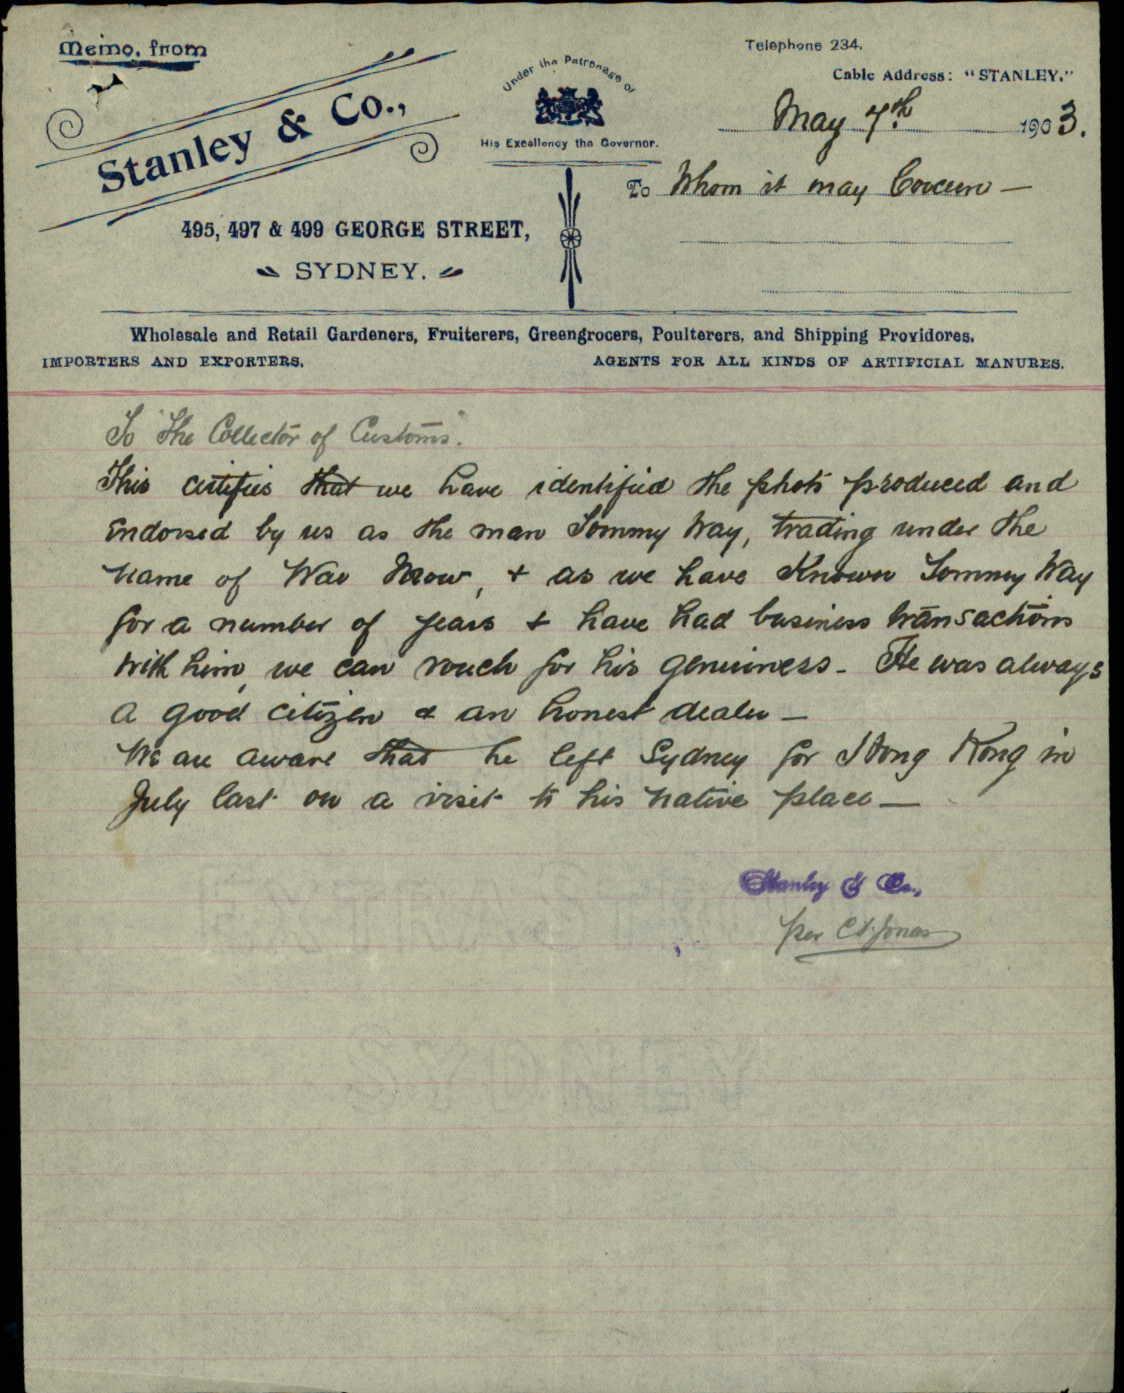 Memo. from
Stanley & Co.,
495, 497 & 499 GEORGE STREET,
SYDNEY.
Under the Patronage of
His Excellency the Governor.
Telephone 234.
Cable Address: "STANLEY."
May 7th 1903.
To Whom it may Concern —
Wholesale and Retail Gardeners, Fruiterers, Greengrocers, Poulterers, and Shipping Providores.
IMPORTERS AND EXPORTERS.
AGENTS FOR ALL KINDS OF ARTIFICIAL MANURES.
To "The Collector of Customs".
This certifies that we have identified the photo produced and
Endorsed by us as the man Tommy Way, trading under the
name of War , & as we have Known Tommy Way
for a number of years & have had business transactions
with him, we can vouch for his genuiness - He was always
a good citizen & an honest dealer —
We are aware that he left Sydney for Hong Kong in
July last on a visit to his native place —
Stanley & Co.,
per Jonas